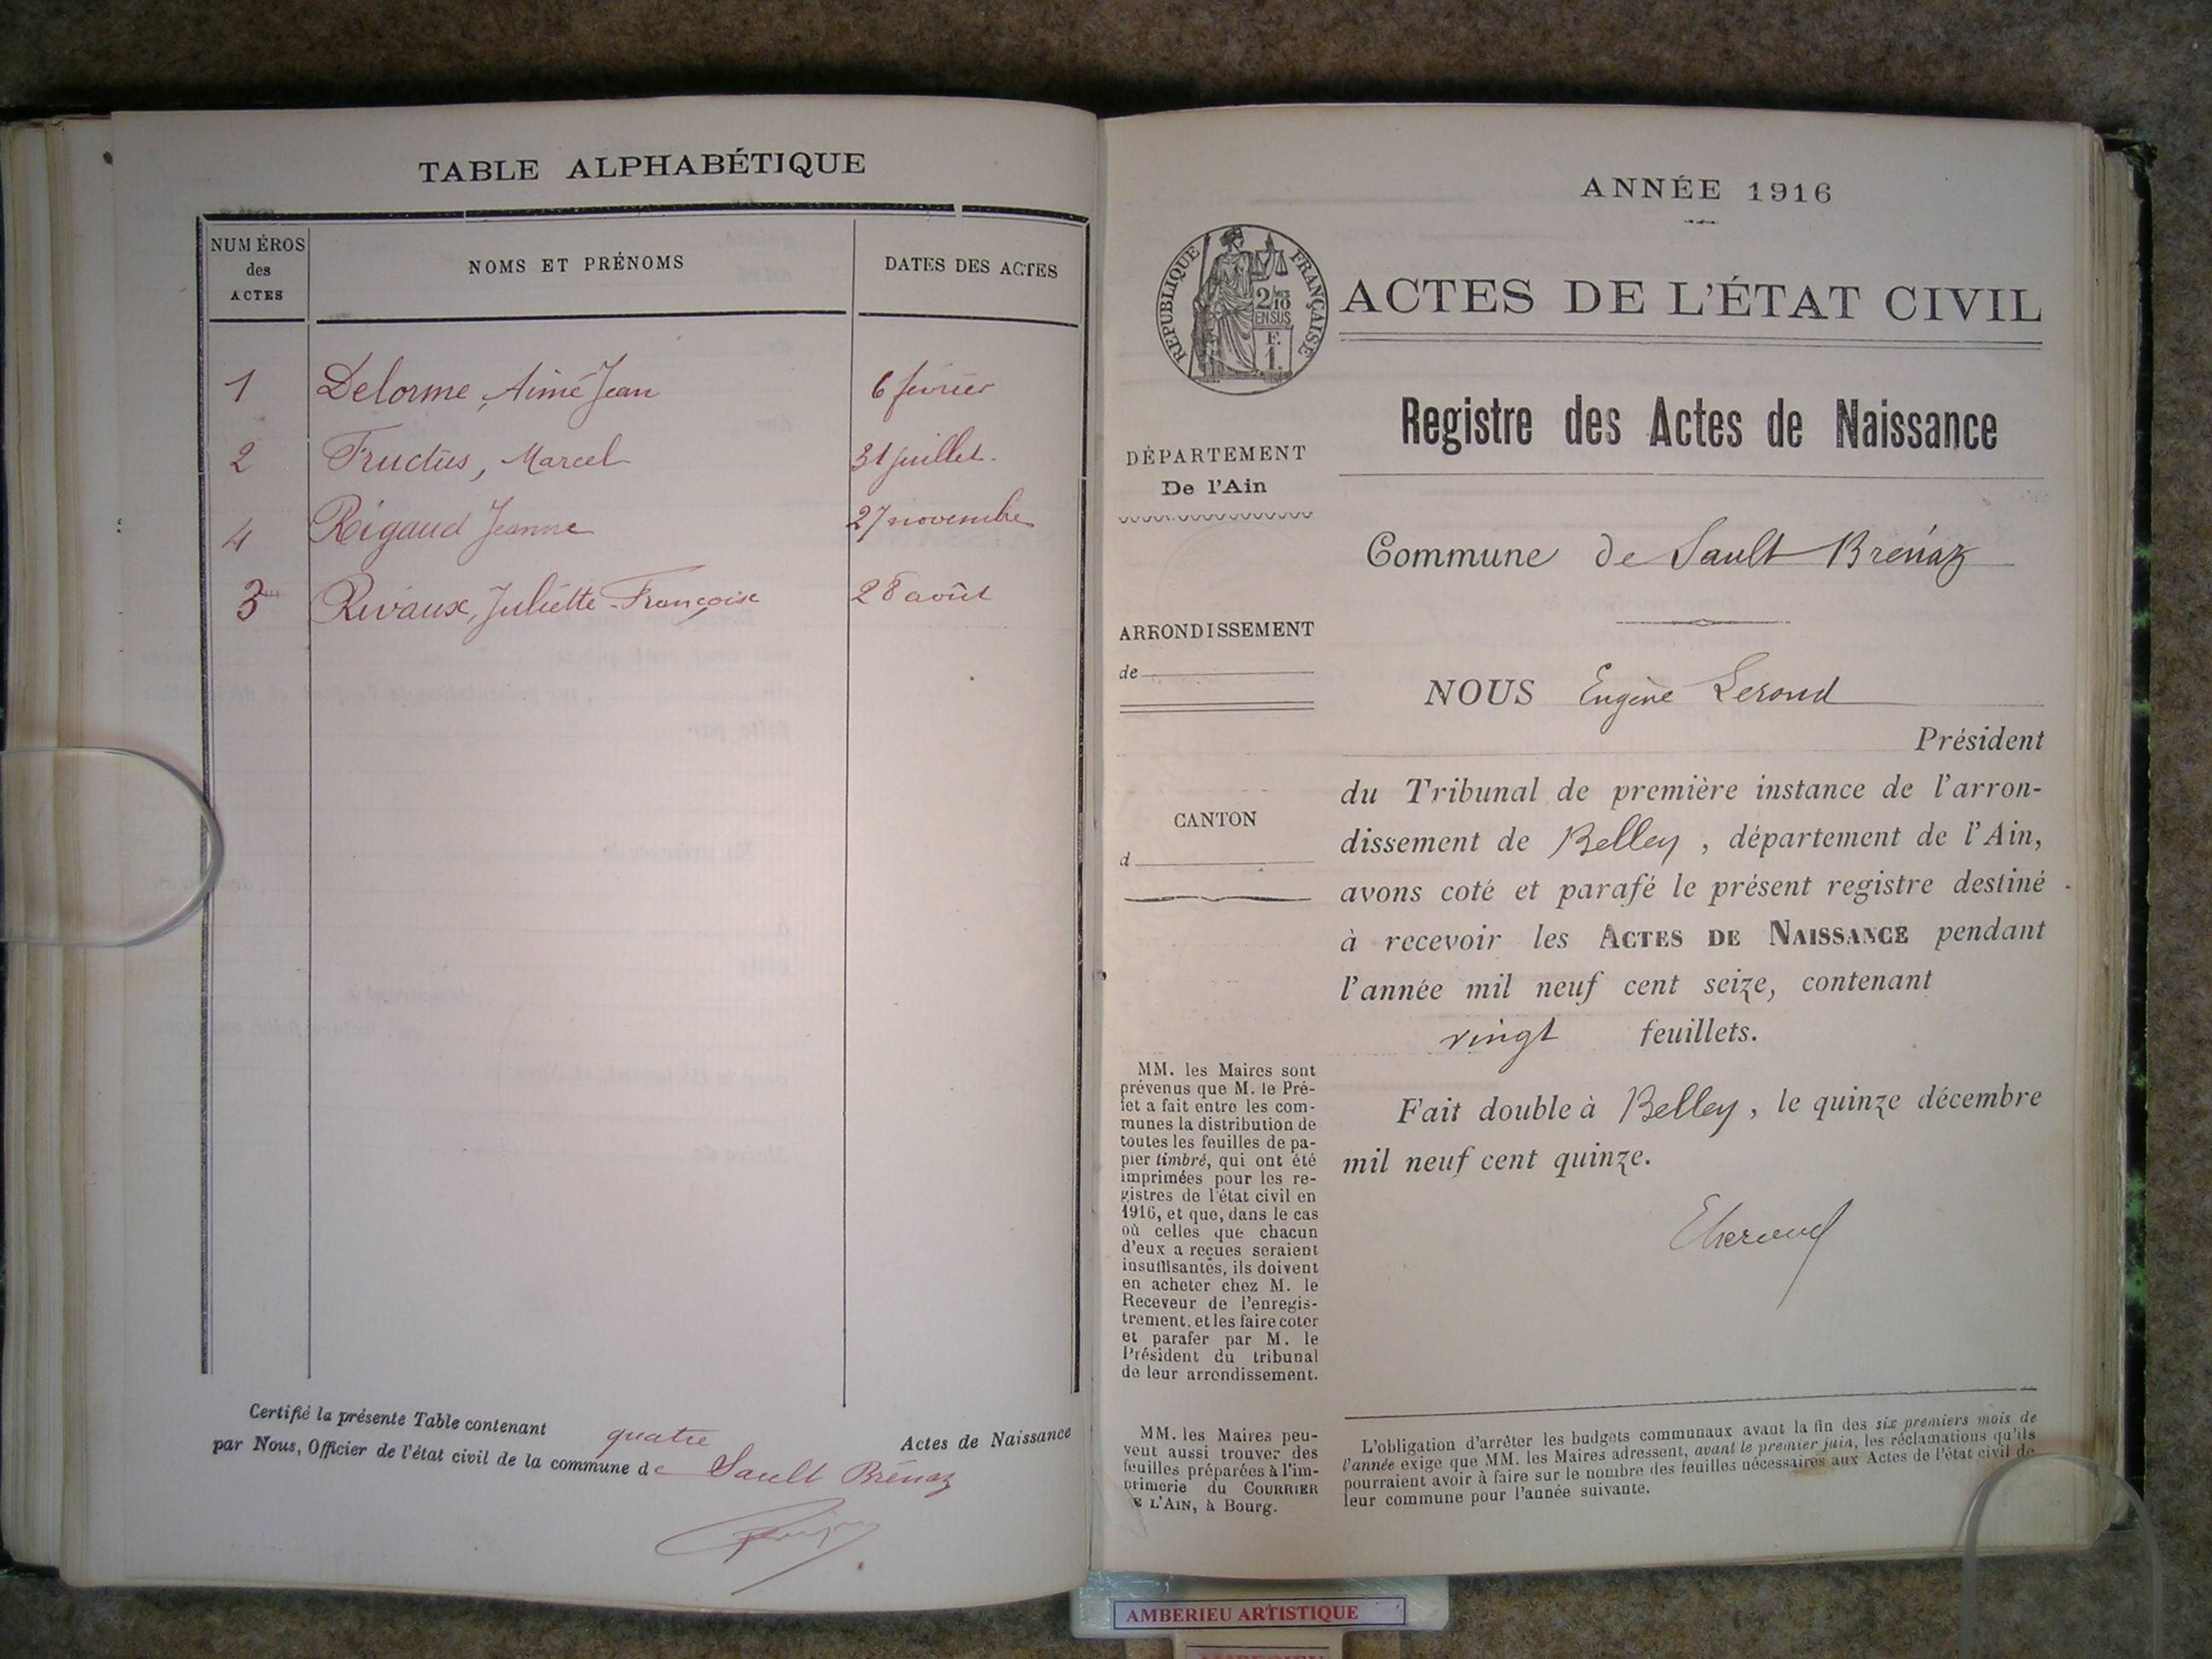 TABLE ALPHABÉTIQUE
NUMÉROS des ACTES
NOMS ET PRÉNOMS
DATES DES ACTES
1 Delorme, Aimé Jean 6 février
2 Fructus, Marcel 31 juillet.
4 Rigaud Jeanne 27 novembre
3 Rivaux, Juliette-Françoise 28 août
Certifié la présente Table contenant quatre Actes de Naissance
par Nous, Officier de l'état civil de la commune de Sault Brénaz
ANNÉE 1916
RÉPUBLIQUE FRANÇAISE
2/10 EN SUS
F.
1.
ACTES DE L'ÉTAT CIVIL
Registre des Actes de Naissance
DÉPARTEMENT
De l'Ain
Commune de Sault Brénaz
ARRONDISSEMENT
de
NOUS Eugène Lerond
Président
CANTON
d
du Tribunal de première instance de l'arron-
dissement de Belley, département de l'Ain,
avons coté et parafé le présent registre destiné
à recevoir les ACTES DE NAISSANCE pendant
l'année mil neuf cent seize, contenant
vingt feuillets.
Fait double à Belley, le quinze décembre
mil neuf cent quinze.
MM. les Maires sont
prévenus que M. le Pré-
fet a fait entre les com-
munes la distribution de
toutes les feuilles de pa-
pier timbré, qui ont été
imprimées pour les re-
gistres de l'état civil en
1916, et que, dans le cas
où celles que chacun
d'eux a reçues seraient
insuffisantes, ils doivent
en acheter chez M. le
Receveur de l'enregis-
trement, et les faire coter
et parafer par M. le
Président du tribunal
de leur arrondissement.
MM. les Maires peu-
vent aussi trouver des
feuilles préparées à l'im-
primerie du COURRIER
DE L'AIN, à Bourg.
L'obligation d'arrêter les budgets communaux avant la fin des six premiers mois de
l'année exige que MM. les Maires adressent, avant le premier juin, les réclamations qu'ils
pourraient avoir à faire sur le nombre des feuilles nécessaires aux Actes de l'état civil de
leur commune pour l'année suivante.
AMBERIEU ARTISTIQUE
AMBERIEU